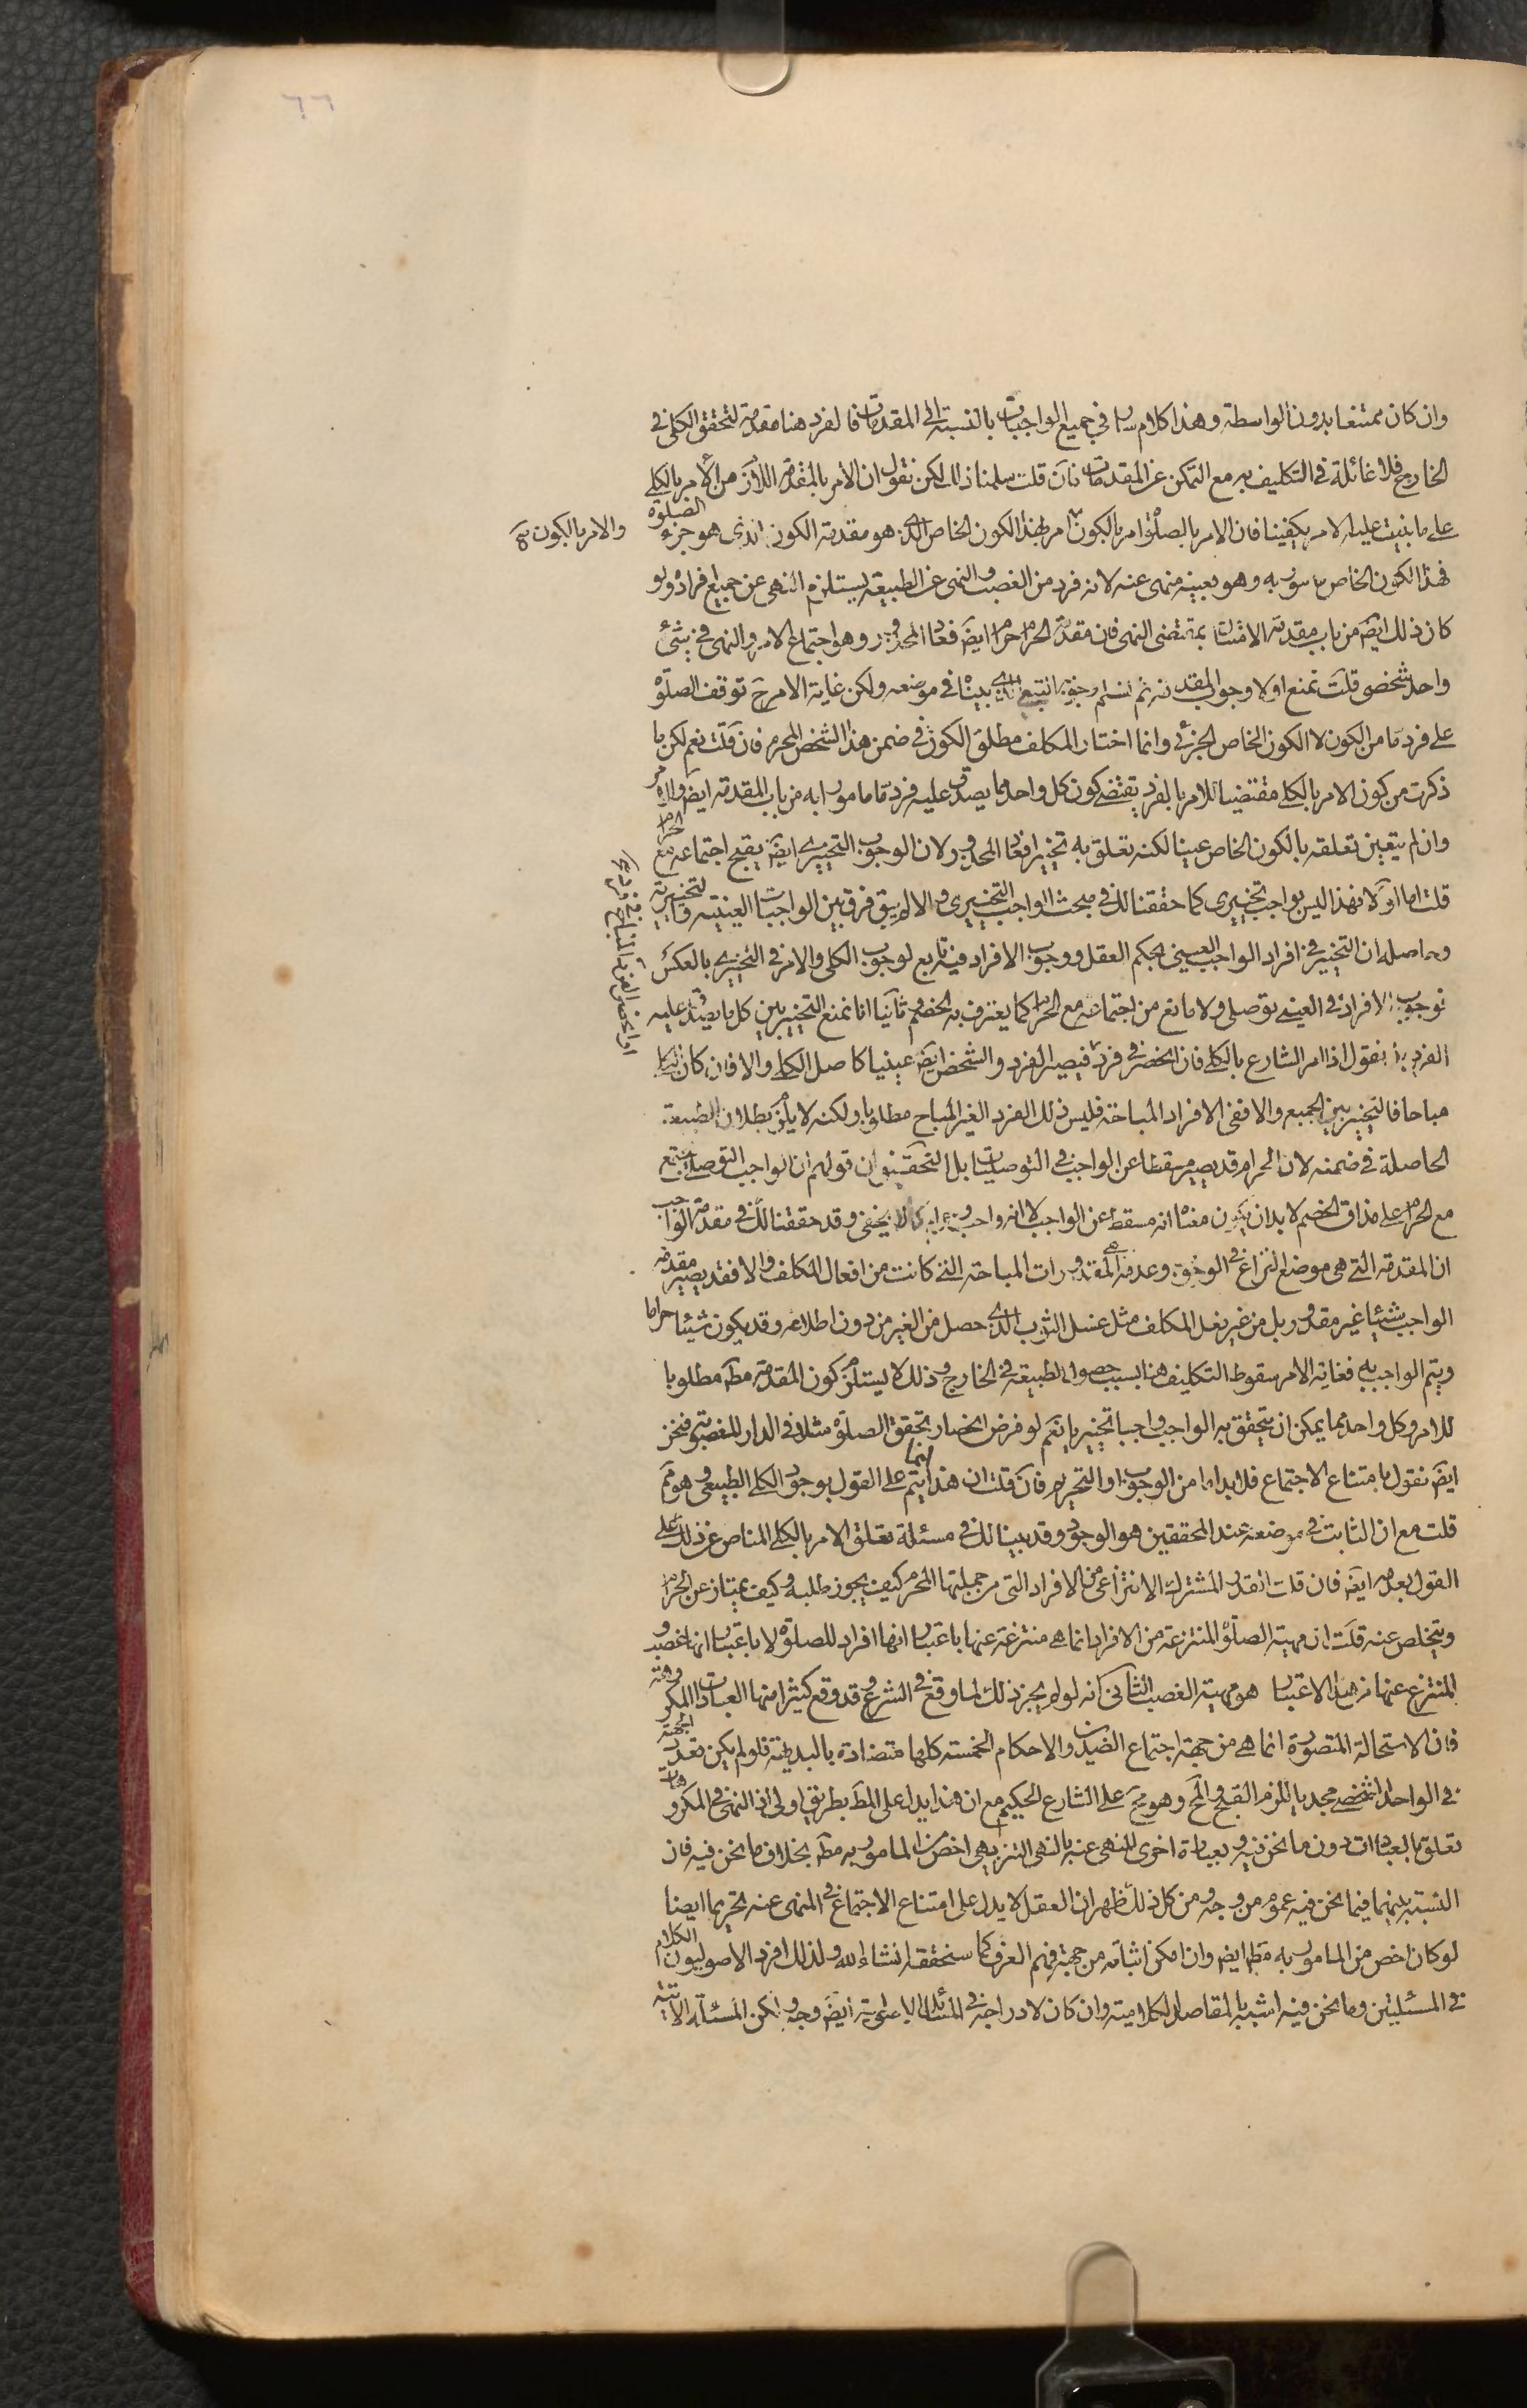 ٦٦
وان كان ممتنعا بدون الواسطة وهذا كلام سار في جميع الواجبات بالنسبة الى المقدمات فالفرد هنا مقدمة لتحقق الكلى فى
الخارج فلا غائلة فى التكليف به مع التمكن عن المقدمات فان قلت سلمنا ذلك لكن نقول ان الامر بالمقدمة اللازم من الامر بالكلى
على ما بنيت عليه الامر يكفينا فان الامر بالصلوة امر بالكون امر بهذا الكون الخاص الذى هو مقدمة الكون الذى هو جزء الصلوة
والامر بالكون
فهذا الكون الخاص مامور به وهو بعينه منهى عنه لانه فرد من الغصب والنهى عن الطبيعة يستلزم النهى عن جميع افراده ولو
كان ذلك ايضَ من باب مقدمة الامتثال بمقتضى النهى فان مقدمة الحرام حرام ايضَ فعاد المحذور وهو اجتماع الامر والنهى فى شئ
واحد شخصى قلت نمنع اولا وجوب المقدمة ثم نسلم وجوبه التبعى الذى بيناه فى موضعه ولكن غاية الامر حَ توقف الصلوة
على فرد ما من الكون لا الكون الخاص الجزئى وانما اختار المكلف مطلق الكون فى ضمن هذا الشخص المحرم فان قلت نعم لكن ما
ذكرت من كون الامر بالكلى مقتضيا للامر بالفرد يقتضى كون كل واحد مما يصدق عليه فرد ما مامورا به من باب المقدمة ايضَ والامر
وان لم يتعين تعلقه بالكون الخاص عينا لكنه تعلق به تخييرا فعاد المحذور لان الوجوب التخييرى ايضَ يقبح اجتماعه مع الحرام
قلت اما اولا فهذا ليس بواجب تخييرى كما حققنا لك فى مبحث الواجب التخييرى والا لم يبق فرق بين الواجبات العينية والتخييرية
وحاصله ان التخيير فى افراد الواجب العينى بحكم العقل ووجوب الافراد فيه تابع لوجوب الكلى والامر فى التخييرى بالعكس
فوجوب الافراد فى العينى توصلى ولا مانع من اجتماعه مع الحرام كما يعترف به الخصم وثانيا انا نمنع التخيير بين كل ما يصدق عليه
الفرد بل نقول اذا امر الشارع بالكلى فان انحصر فى فرد فيصير الفرد والشخص ايضَ عينيا كاصل الكلى والا فان كان الكل
مباحا فالتخيير بين الجميع والا ففى الافراد المباحة فليس ذلك الفرد الغير المباح مطلوبا ولكنه لا يلزم بطلان الطبيعة
الحاصلة فى ضمنه لان الحرام قد يصير مسقطا عن الواجب فى التوصليات بل التحقيق ان قولهم ان الواجب التوصلى يجتمع
مع الحرام على مذاق الخصم لا بد ان يكون معناه انه مسقط عن الواجب لا انه واجب وحرام كما لا يخفى وقد حققنا لك فى مقدمة الواجب
ان المقدمة التى هى موضع النزاع فى الوجوب وعدمه هى المقدورات المباحة التى كانت من افعال المكلف والا فقد يصير مقدمة
الواجب شيئا غير مقدور بل من غير فعل المكلف مثل غسل الثوب الذى حصل من الغير من دون اطلاعه وقد يكون شيئا حراما
ويتم الواجب به فغاية الامر سقوط التكليف هنا بسبب حصول الطبيعة فى الخارج وذلك لا يستلزم كون المقدمة مطَ مطلوبا
للامر وكل واحد مما يمكن ان يتحقق به الواجب واجبا تخييريا نعم لو فرض انحصار تحقق الصلوة مثلا فى الدار المغصوبة فنحن
ايضَ نقول بامتناع الاجتماع فلا بد اما من الوجوب او التحريم فان قلت ان هذا انما يتم على القول بوجود الكلى الطبيعى وهو مَم
قلت مع ان الثابت فى موضعه عند المحققين هو الوجود وقد بينا لك فى مسئلة تعلق الامر بالكلى المناص عن ذلك على
القول بعدمه ايضَ فان قلت القدر المشترك الانتزاعى من الافراد التى من جملتها المحرم كيف يجوز طلبه وكيف يمتاز عن الحرام
ويتخلص عنه قلت ان مهية الصلوة المنتزعة من الافراد انما هى منتزعة عنها باعتبار انها افراد للصلوة لا باعتبار انها غصب و
المنتزع عنها من هذا الاعتبار هو مهية الغصب الثانى انه لو لم يجز ذلك لما وقع فى الشرع وقد وقع كثيرا منها العبادات المكروهة
فان الاستحالة المتصورة انما هى من جهة اجتماع الضدين والاحكام الخمسة كلها متضادة بالبديهة فلو لم يكن تعدد الجهة
فى الواحد الشخصى مجديا للزم القبح والمحَ وهو مَح على الشارع الحكيم مع ان هذا يدل على المطَ بطريق اولى اذ النهى فى المكروهات
تعلق بالعبادات دون ما نحن فيه وبعبارة اخرى المنهى عنه بالنهى التنزيهى اخص من المامور به مطَ بخلاف ما نحن فيه فان
النسبة بينهما فيما نحن فيه عموم من وجه ومن كل ذلك ظهر ان العقل لا يدل على امتناع الاجتماع فى المنهى عنه تحريما ايضا
لو كان اخص من المامور به مطَ ايضَ وان امكن اثباته من جهة فهم العرف كما سنحققه انشاء الله ولذلك افرد الاصوليون الكلام
فى المسئلتين وما نحن فيه اشبه بالمقاصد الكلامية وان كان لادراجه فى المسائل الاصولية ايضَ وجه ولكن المسئلة الاتية